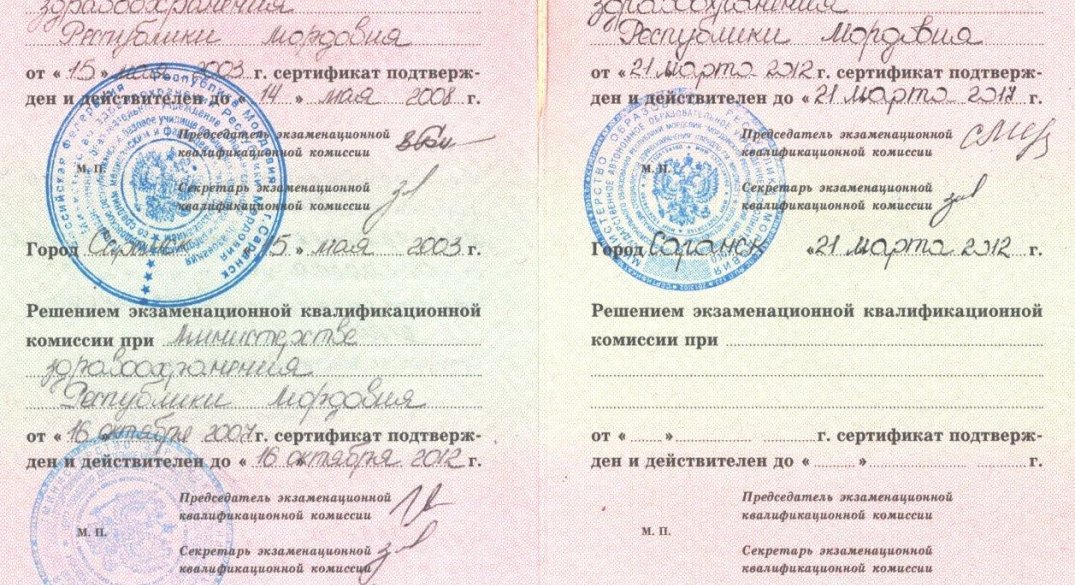 здравоохранения
Республики Мордовия
от « 15 » мая 2003 г. сертификат подтверж-
ден и действителен до « 14 » мая 2008 г.
Председатель экзаменационной
квалификационной комиссии
М. П.
Секретарь экзаменационной
квалификационной комиссии
Город Саранск « 15 » мая 2003 г.
Решением экзаменационной квалификационной
комиссии при Министерстве
здравоохранения
Республики Мордовия
от « 16 октября 2007 г. сертификат подтверж-
ден и действителен до « 16 октября 2012 г.
Председатель экзаменационной
квалификационной комиссии
М. П.
Секретарь экзаменационной
квалификационной комиссии
здравоохранения
Республики Мордовия
от « 21 марта 2012 г. сертификат подтверж-
ден и действителен до « 21 марта 2017 г.
Председатель экзаменационной
квалификационной комиссии
М. П.
Секретарь экзаменационной
квалификационной комиссии
Город Саранск « 21 марта 2012 г.
Решением экзаменационной квалификационной
комиссии при
от « » г. сертификат подтверж-
ден и действителен до « » г.
Председатель экзаменационной
квалификационной комиссии
М. П.
Секретарь экзаменационной
квалификационной комиссии